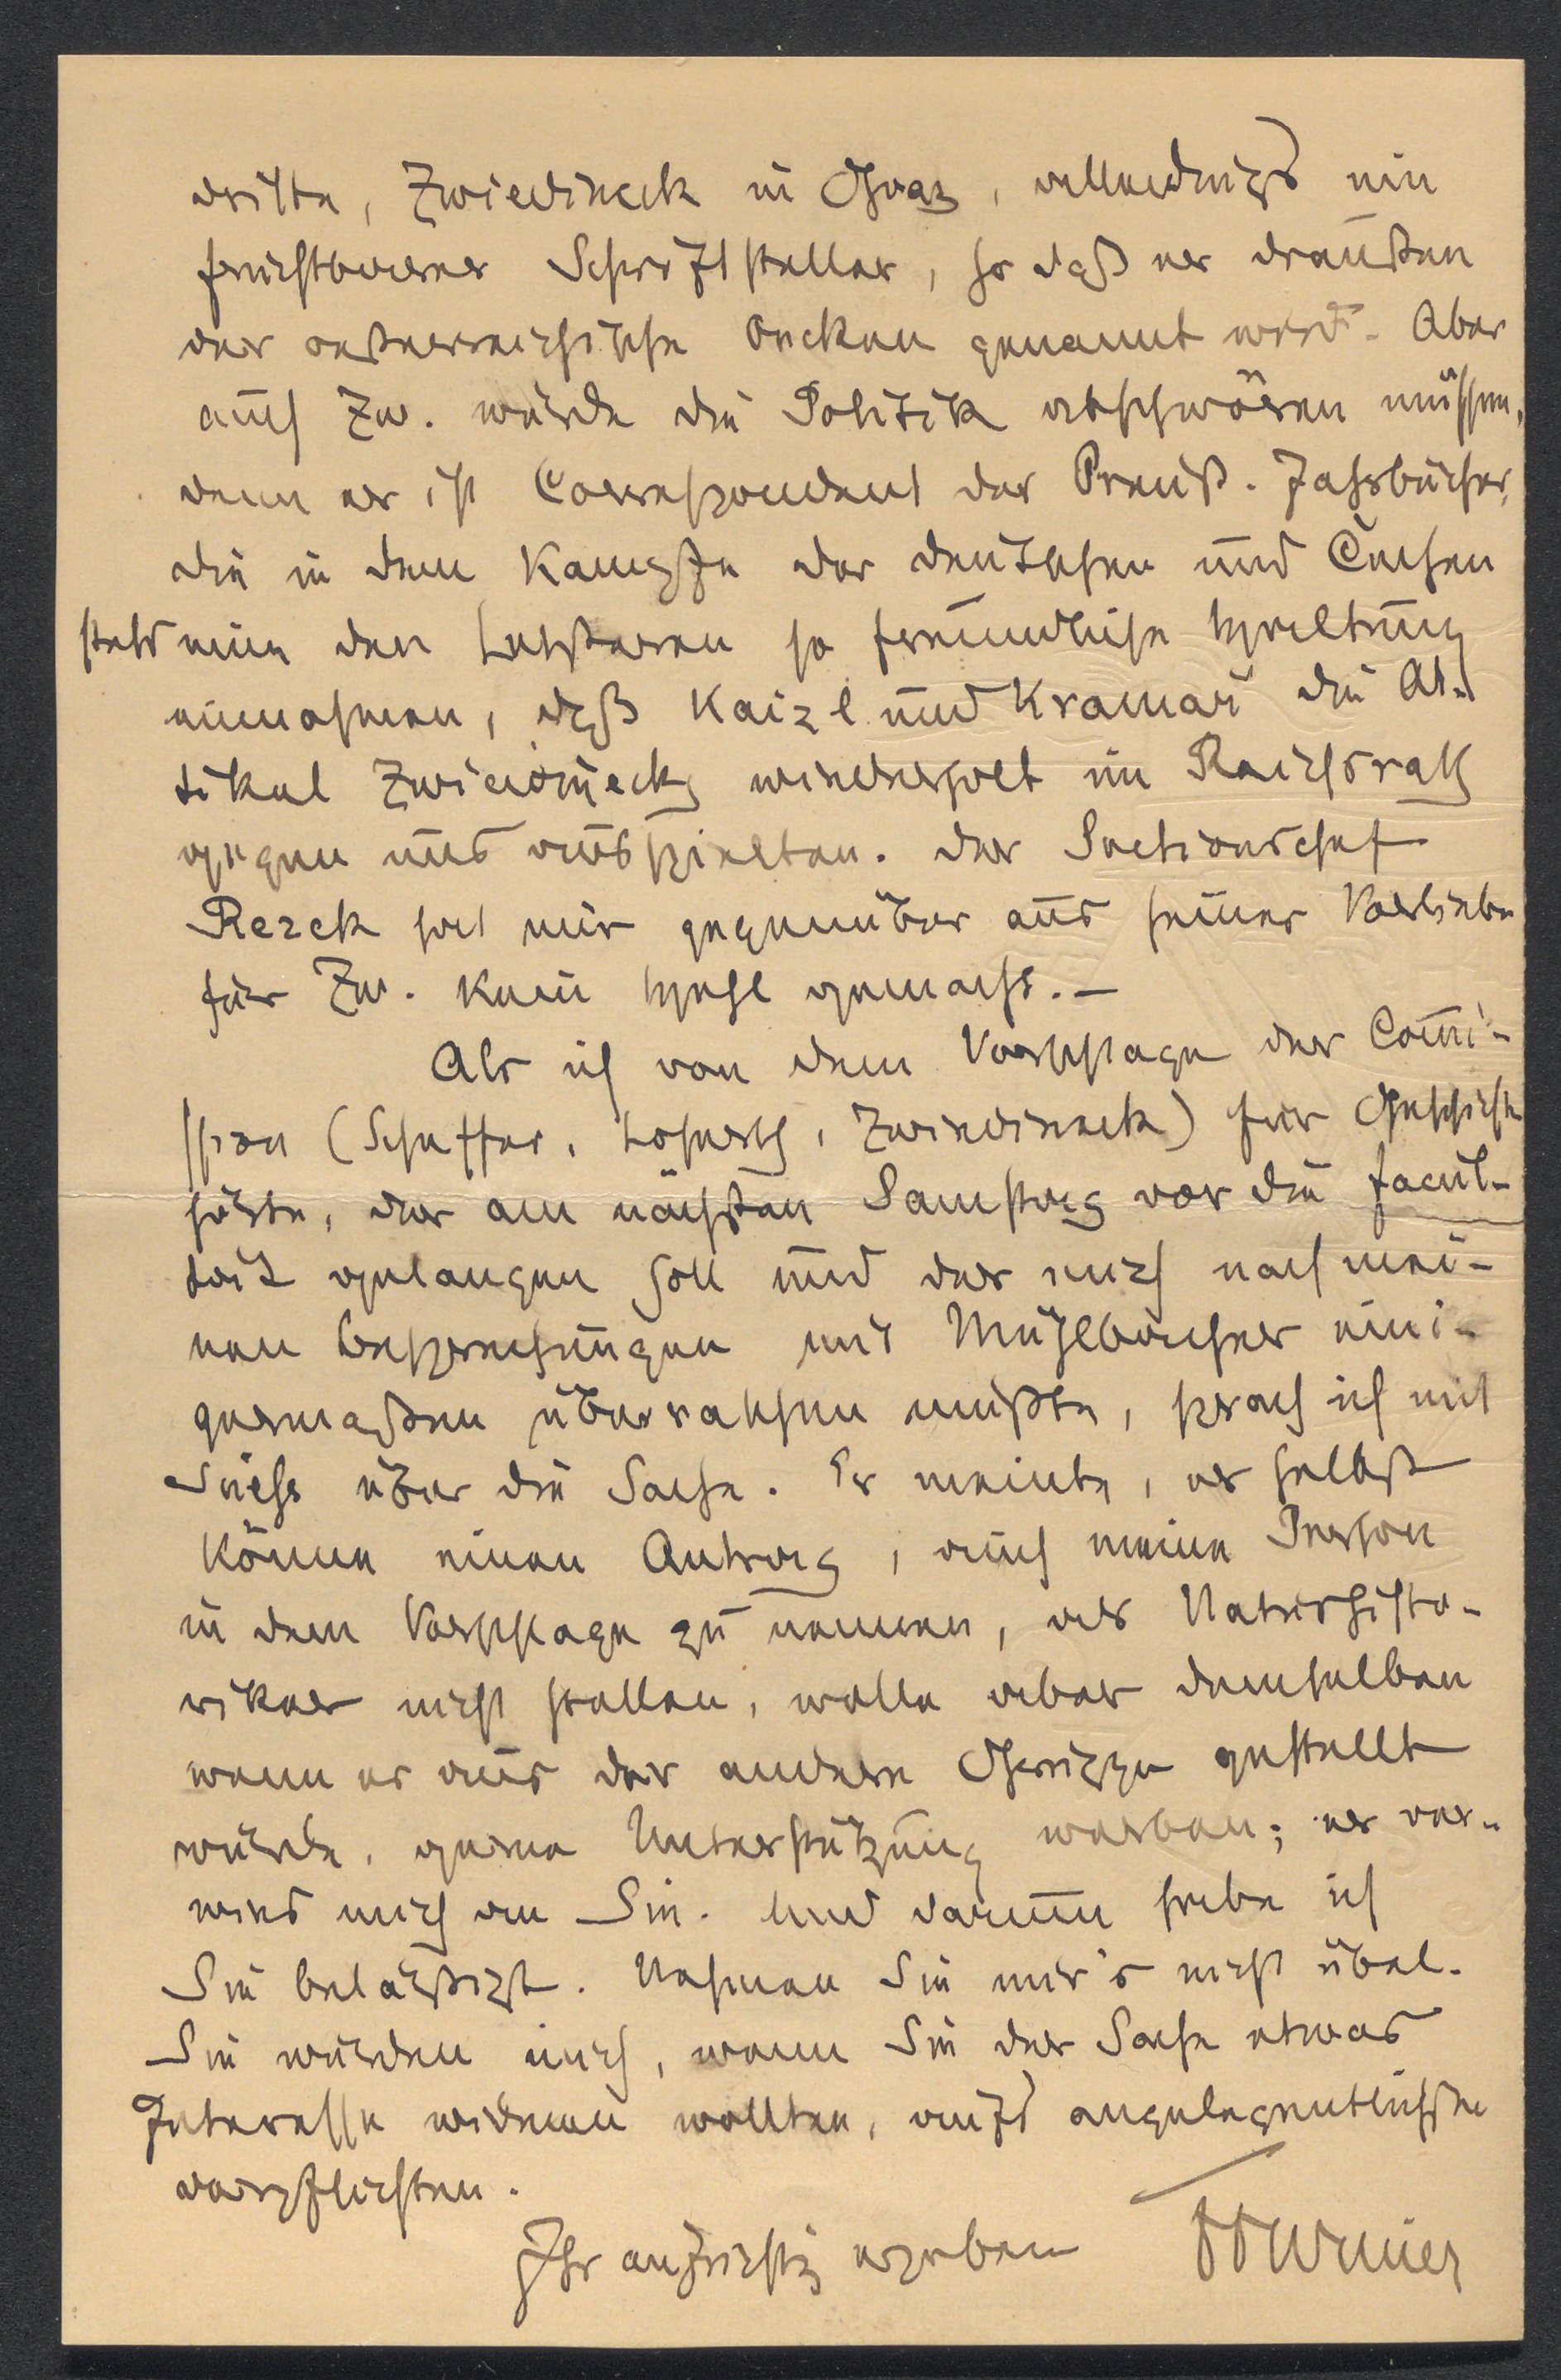 dritte, Zwiedineck in Graz, allerdings ein
fruchtbarer Schriftsteller, so daß er draußen
der oesterreichische Oncken genannt wird. Aber
auch Zw. würde die Politik abschwören müssen,
denn er ist Correspondent der Preuß. Jahrbücher,
die in dem Kampfe der Deutschen und Čechen
stets eine den Letzteren so freundliche Haltung
einnahmen, daß Kaizl und Kramař die Ar-
tikel Zwiedinecks wiederholt im Reichsrath
gegen uns ausspielten. Der Sectionschef
Rezek hat mir gegenüber aus seiner Vorliebe
für Zw. kein Hehl gemacht. –
Als ich von dem Vorschlage der Com̅i-
ssion (Scheffer, Loserth, Zwiedineck) für Geschichte
hörte, der am nächsten Samstag vor die Facul-
tät gelangen soll und der mich nach mei-
nen Besprechungen mit Mühlbacher eini-
germaßen überraschen mußte, sprach ich mit
Suess über die Sache. Er meinte, er selbst
könne einen Antrag, auch meine Person
in dem Vorschlage zu nennen, als Naturhisto-
riker nicht stellen, wolle aber demselben
wenn er aus der andern Gruppe gestellt
würde, gerne Unterstützung werben; er ver-
wies mich an Sie. Und darum habe ich
Sie belästigt. Nehmen Sie mir's nicht übel.
Sie würden mich, wenn Sie der Sache etwas
Interesse widmen wollten, aufs angelegentlichste
verpflichten.
Ihr aufrichtig ergebener